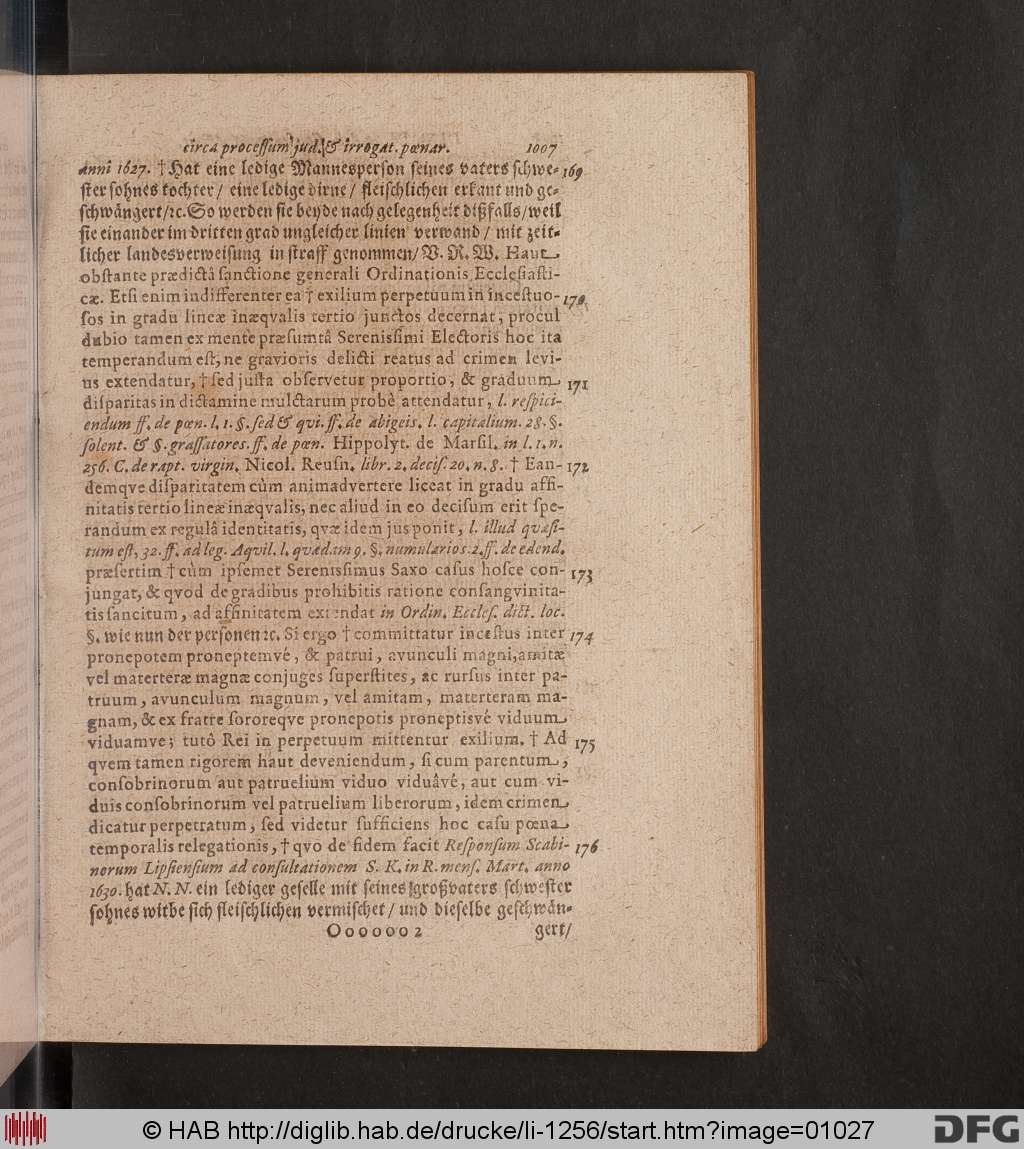 circa processum jud. & irrogat. pœnar. 1007
anni 1627. † Hat eine ledige Mannesperson seines vaters schwe- 169
ster sohnes tochter / eine ledige dirne / fleischlichen erkant und ge-
schwängert / ꝛc. So werden sie beyde nach gelegenheit dißfalls / weil
sie einander im dritten grad ungleicher linien verwand / mit zeit-
licher landesverweisung in straff genommen / V. R. W. Haut
obstante prædictâ sanctione generali Ordinationis Ecclesiasti-
cæ. Etsi enim indifferenter ea † exilium perpetuum in incestuo- 170
sos in gradu lineæ inæqvalis tertio junctos decernat, procul
dubio tamen ex mente præsumtâ Serenissimi Electoris hoc ita
temperandum est, ne gravioris delicti reatus ad crimen levi-
us extendatur, † sed justa observetur proportio, & graduum 171
disparitas in dictamine mulctarum probè attendatur, l. respici-
endum ff. de pœn. l. 1. §. sed & qvi. ff. de abigeis. l. capitalium. 28. §.
solent. & §. grassatores. ff. de pœn. Hippolyt. de Marsil. in l. 1. n.
256. C. de rapt. virgin. Nicol. Reusn. libr. 2. decis. 20. n. 8. † Ean- 172
demqve disparitatem cùm animadvertere liceat in gradu affi-
nitatis tertio lineæ inæqvalis, nec aliud in eo decisum erit spe-
randum ex regulâ identitatis, qvæ idem jus ponit, l. illud qvæsi-
tum est, 32. ff. ad leg. Aqvil. l. qvædam 9. §. numularios. 2. ff. de edend.
præsertim † cùm ipsemet Serenissimus Saxo casus hosce con- 173
jungat, & qvod de gradibus prohibitis ratione consangvinita-
tis sancitum, ad affinitatem extendat in Ordin. Eccles. dict. loc.
§. wie nun der personen ꝛc. Si ergo † committatur incestus inter 174
pronepotem proneptemvé, & patrui, avunculi magni, amitæ
vel materteræ magnæ conjuges superstites, ac rursus inter pa-
truum, avunculum magnum, vel amitam, materteram ma-
gnam, & ex fratre sororeqve pronepotis proneptisvé viduum
viduamve; tutô Rei in perpetuum mittentur exilium. † Ad 175
qvem tamen rigorem haut deveniendum, si cum parentum,
consobrinorum aut patruelium viduo viduâvé, aut cum vi-
duis consobrinorum vel patruelium liberorum, idem crimen
dicatur perpetratum, sed videtur sufficiens hoc casu pœna
temporalis relegationis, † qvo de fidem facit Responsum Scabi- 176
norum Lipsiensium ad consultationem S. K. in R. mens. Mart. anno
1630. hat N. N. ein lediger geselle mit seines großvaters schwester
sohnes witbe sich fleischlichen vermischet / und dieselbe geschwän-
Ooooooo 2 gert /
© HAB http://diglib.hab.de/drucke/li-1256/start.htm?image=01027
DFG